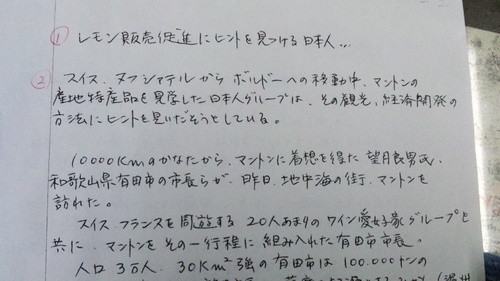 ① レモン販売促進にヒントを見つける日本人...
② スイス、ヌフシャテルからボルドーへの移動中、マントンの
産地特産品を見学した日本人グループは、その観光、経済開発の
方法にヒントを見いだそうとしている。
10000Kmのかなたから、マントンに着想を得た望月良男氏、
和歌山県有田市の市長らが、昨日、地中海の街、マントンを
訪れた。
スイス、フランスを周遊する20人あまりのワイン愛好家グループと
共に、マントンをその一行程に組み入れた有田市市長。
人口3万人、30Km²強の有田市は100.000トンの